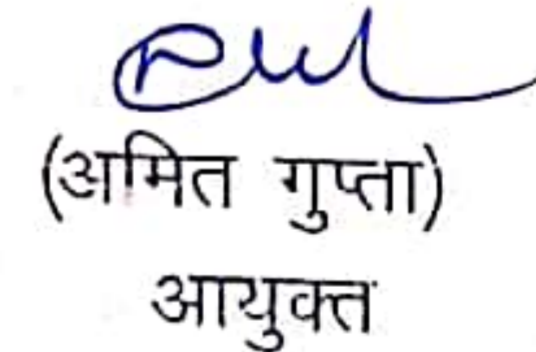 (अमित गुप्ता)
आयुक्त